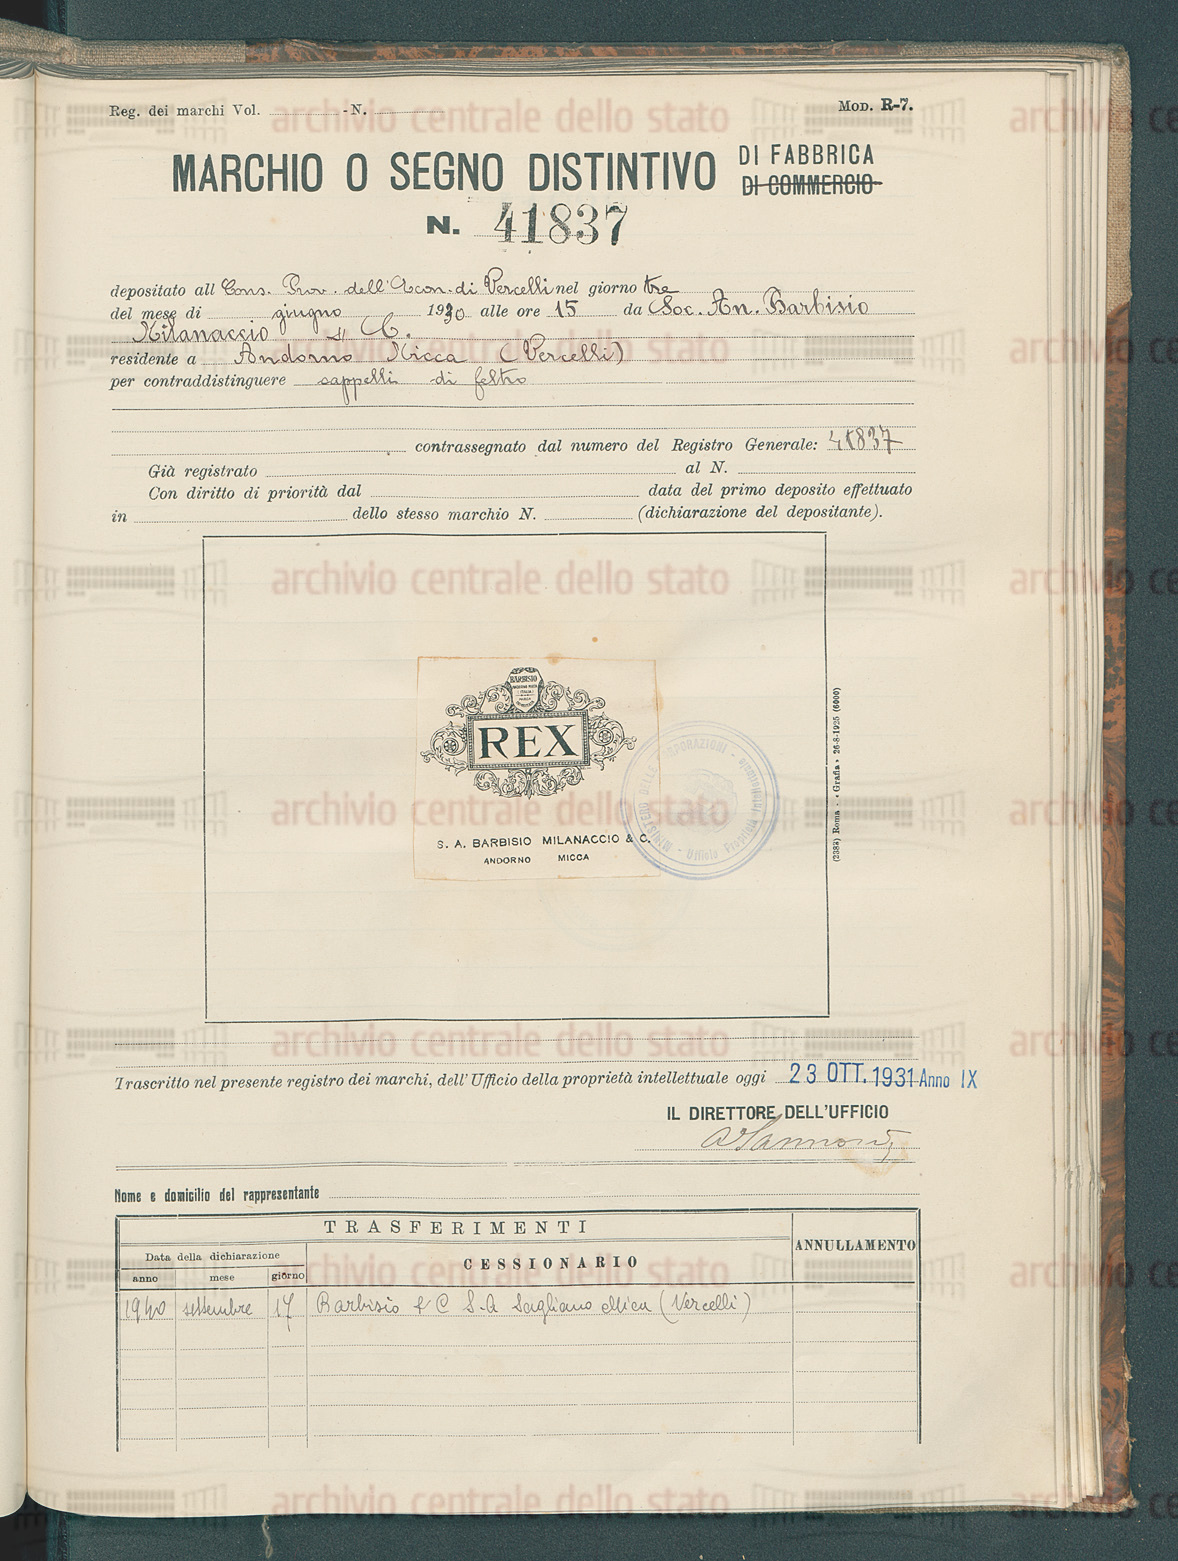 Reg. dei marchi Vol. - N. Mod. R-7.
MARCHIO O SEGNO DISTINTIVO DI FABBRICA
DI COMMERCIO
N. 41837
depositato all Cons. Prov. dell'Econ. di Vercelli nel giorno tre
del mese di giugno 1930 alle ore 15 da Soc. An. Barbisio
Milanaccio & C.
residente a Andorno Micca (Vercelli)
per contraddistinguere cappelli di feltro
contrassegnato dal numero del Registro Generale: 41837
Già registrato al N.
Con diritto di priorità dal data del primo deposito effettuato
in dello stesso marchio N. (dichiarazione del depositante).
BARBISIO
ANDORNO MICCA
(ITALIA)
REX
S. A. BARBISIO MILANACCIO & C.
ANDORNO MICCA
MINISTERO DELLE CORPORAZIONI - Ufficio Proprietà Intellettuale
(2383) Roma - «Grafia» 26-8-1925 (6000)
Trascritto nel presente registro dei marchi, dell'Ufficio della proprietà intellettuale oggi 23 OTT. 1931 Anno IX
IL DIRETTORE DELL'UFFICIO
Nome e domicilio del rappresentante
TRASFERIMENTI
ANNULLAMENTO
Data della dichiarazione
CESSIONARIO
anno mese giorno
1940 settembre 17 Barbisio & C S.A Sagliano Micca (Vercelli)
archivio centrale dello stato